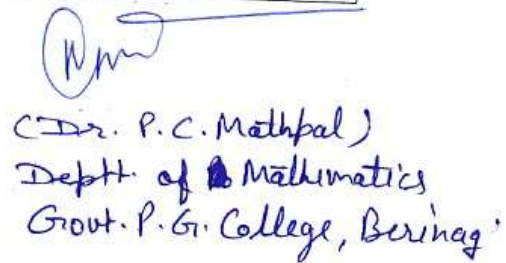 (Dr. P.C. Mathpal)
Deptt. of Mathematics
Govt. P.G. College, Berinag.